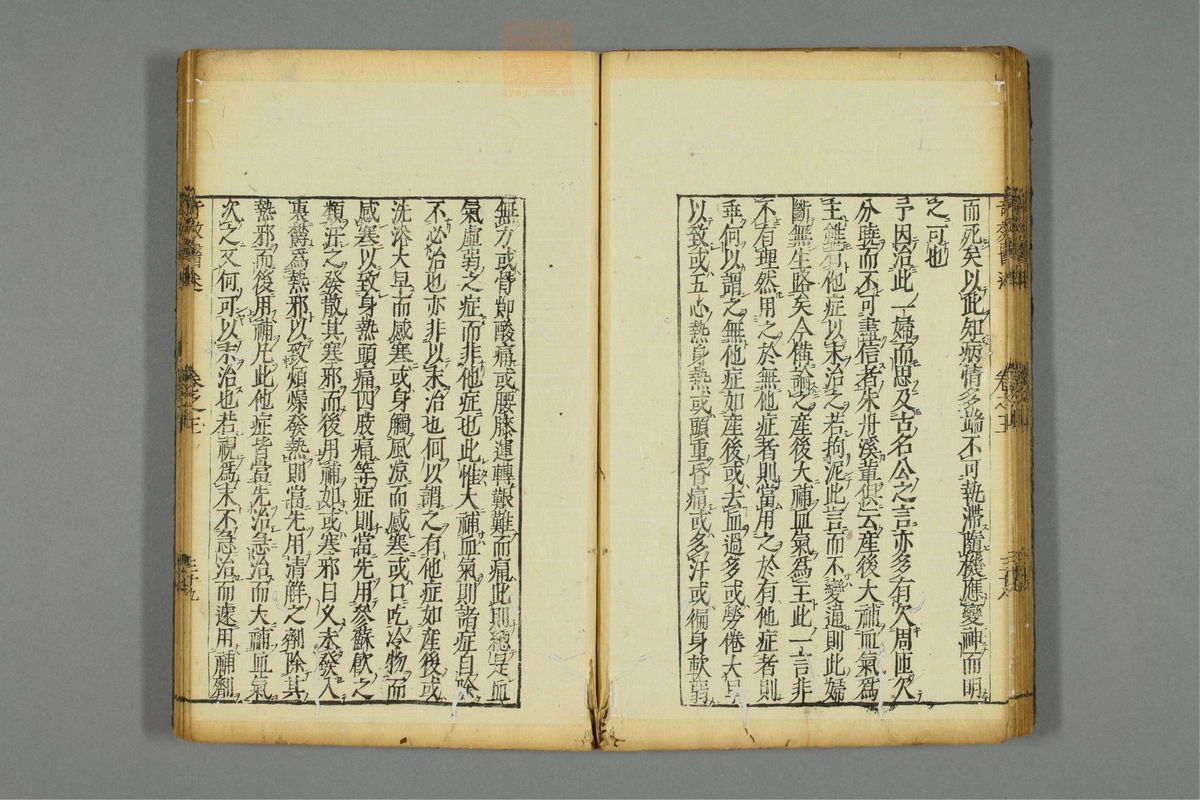 而死矣以此知病情多端不可執滯隨機應變神而明
之可也
予因治此一婦而思及古名公之言亦多有欠周匝欠
分曉而不可盡信者朱丹溪輩但云産後大補血氣爲
主雖有他症以末治之若拘泥此言而不變通則此婦
斷無生路矣今備論之産後大補血氣爲主此一言非
不有理然用之於無他症者則當用之於有他症者則
乖何以謂之無他症如産後或去血過多或勞倦大早
以致或五心熱身熱或頭重昏痛或多汗或徧身軟弱
無力或骨節酸痛或腰膝運轉艱難而痛此則總是血
氣虛弱之症而非他症也此惟大補血氣則諸症自除
不必治也亦非以末治也何以謂之有他症如産後或
洗浴大早而感寒或身觸風凉而感寒或口吃冷物而
感寒以致身熱頭痛四肢痛等症則當先用參蘇飮之
類汗之發散其寒邪而後用補如或寒邪日久未發入
裏欝爲熱邪以致煩燥發熱則當先用清解之劑除其
熱邪而後用補凡此他症皆當先治急治而大補血氣
次之又何可以末治也若視爲末不急治而遽用補劑
奇效醫述
卷之二
三十九